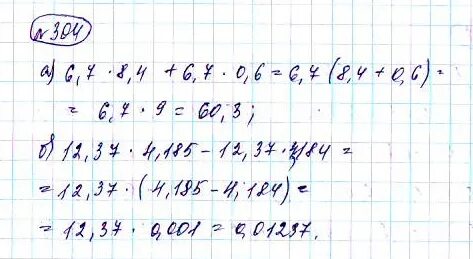 №304
а) 6,7 · 8,4 + 6,7 · 0,6 = 6,7 (8,4 + 0,6) =
= 6,7 · 9 = 60,3;
б) 12,37 · 4,185 - 12,37 · 4,184 =
= 12,37 · (4,185 - 4,184) =
= 12,37 · 0,001 = 0,01237.